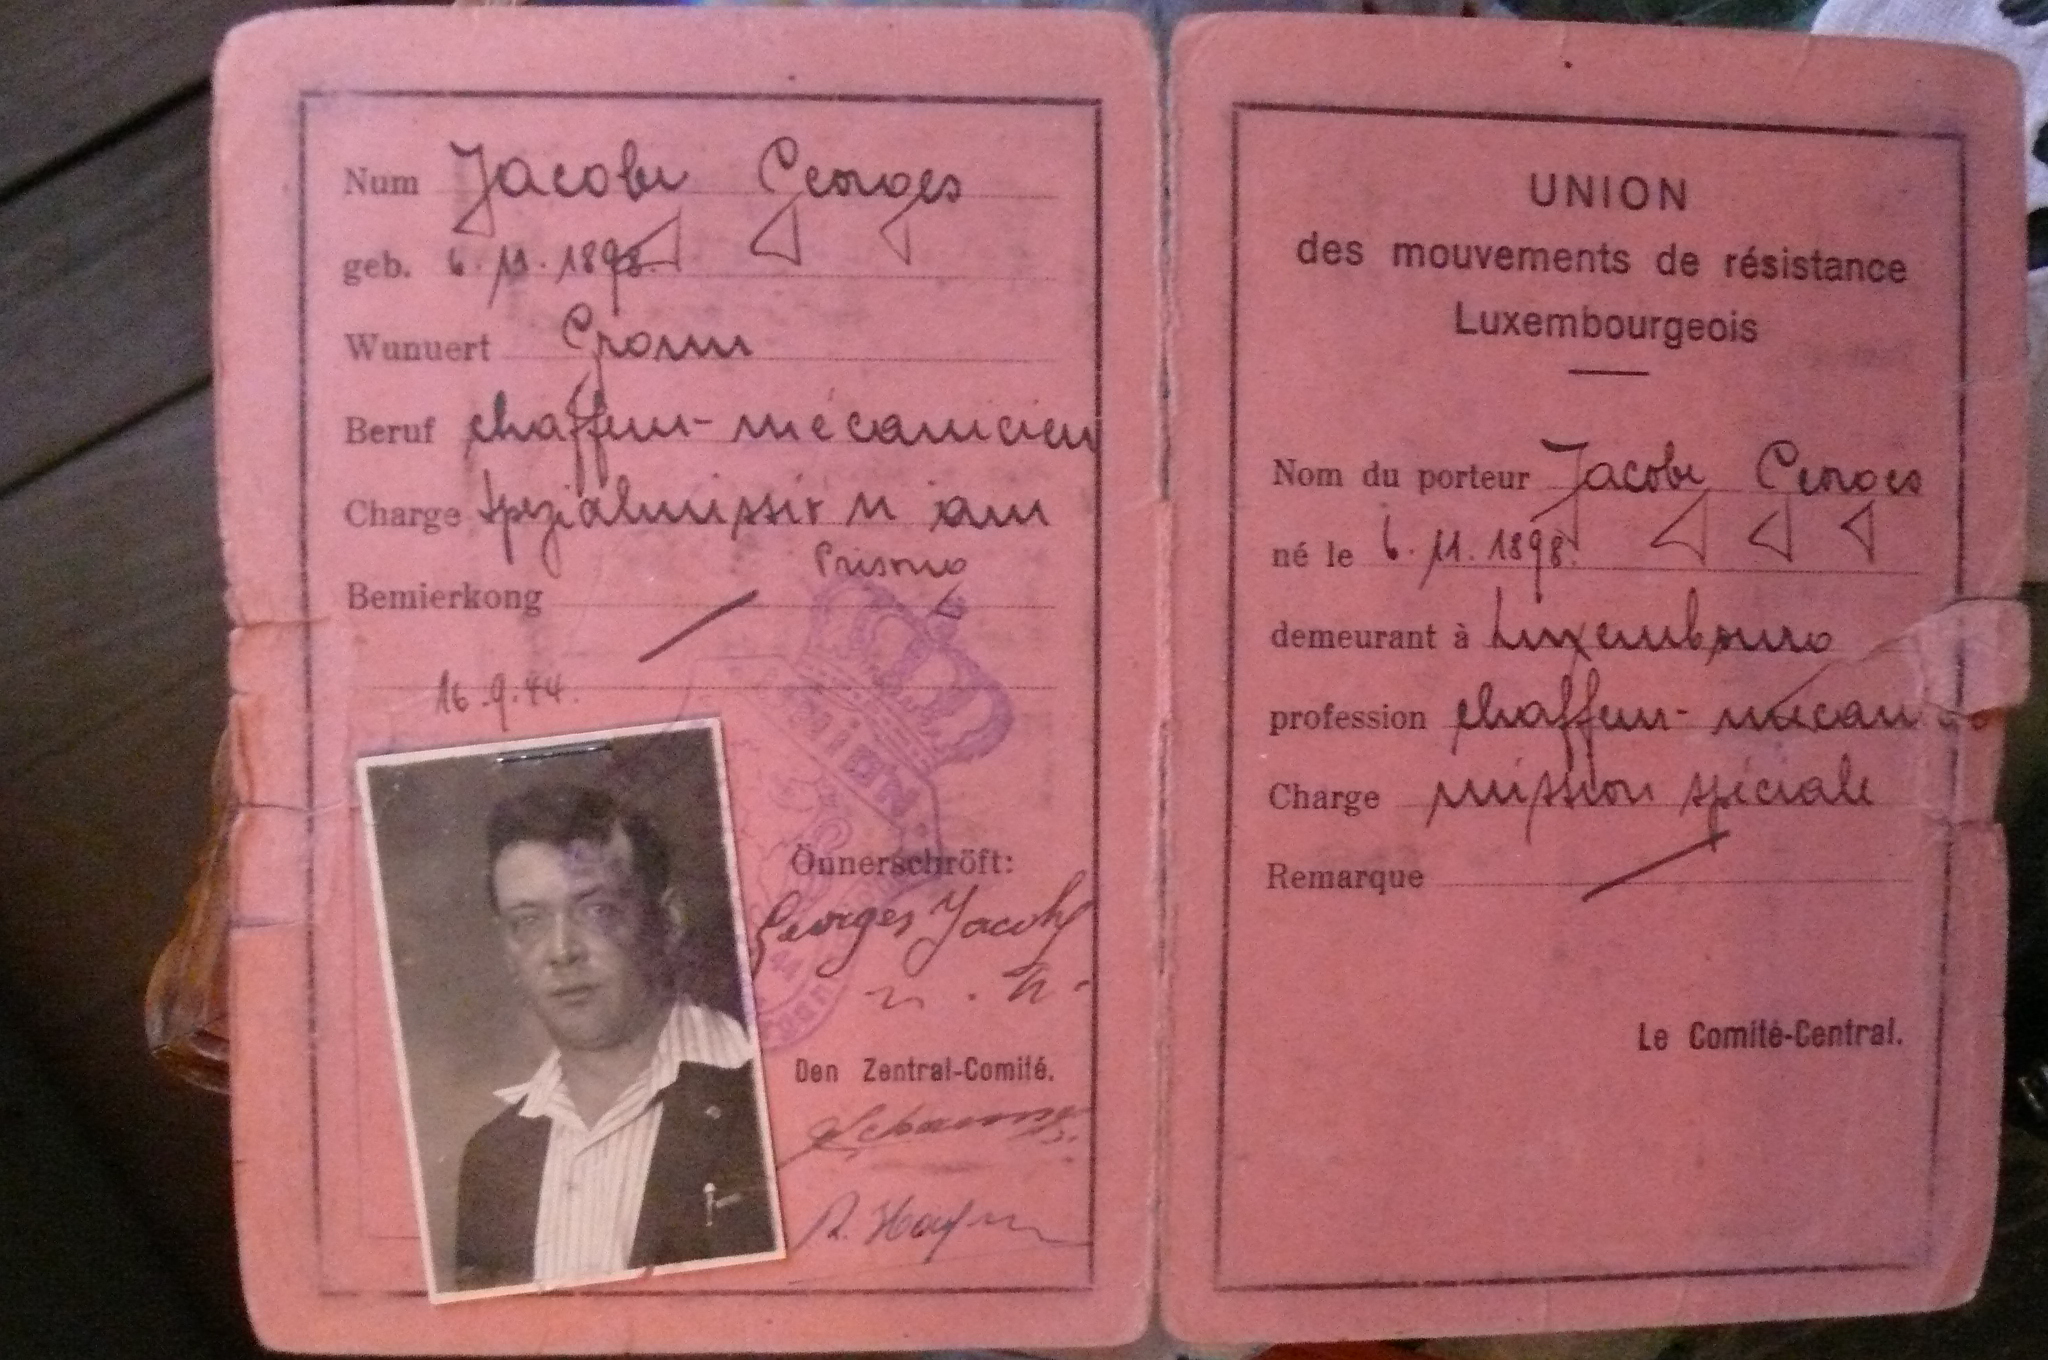 Num Jacoby Georges
geb. 6.11.1898.
Wunuert
Beruf chauffeur-mécanicien
Charge Spezialmissioun am
Prisong
Bemierkong
16.9.44.
UNION
Önnerschröft:
Georges Jacoby
Den Zentral-Comité.
UNION
des mouvements de résistance
Luxembourgeois
Nom du porteur Jacoby Georges
né le 6.11.1898.
demeurant à Luxembourg
profession chauffeur-mécan
Charge mission spéciale
Remarque
Le Comité-Central.